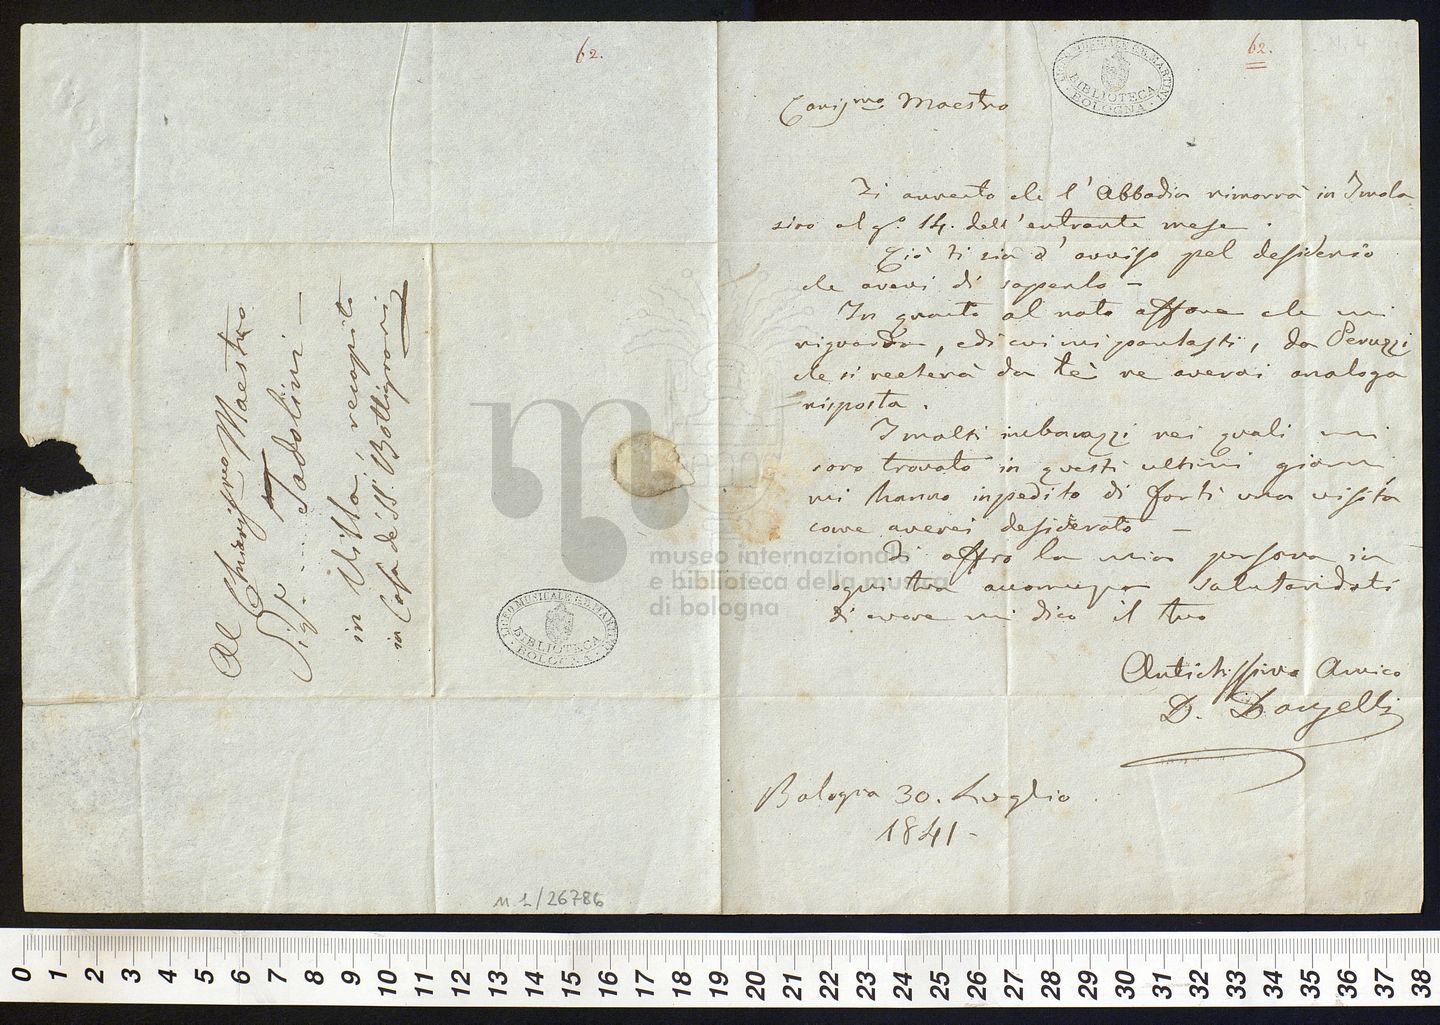 62.
Al Chiarissmo Maestro
Sigr ..... Tadolini —
in Villa, recapito
in Casa de SS.i Bottrigari
LICEO MUSICALE G.B. MARTINI
BIBLIOTECA
BOLOGNA
n. 1/26786
62.
LICEO MUSICALE G.B. MARTINI
BIBLIOTECA
BOLOGNA
Carissmo Maestro
Ti avverto che l'Abbadia rimarrà in Imola
sino al go. 14. dell'entrante mese.
Ciò ti sia d'avviso pel desiderio
che avevi di saperlo —
In quanto al noto affare che mi
riguarda, e di cui mi parlasti, da Peruzzi
che si recherà da tè ne averai analoga
risposta.
I molti imbarazzi nei quali mi
sono trovato in questi ultimi giorni
mi hanno inpedito di farti una visita
come averei desiderato —
Ti offro la mia persona in
ogni tua e salutandoti
di cuore mi dico il tuo
Antichissimo Amico
D. Donzelli
Bologna 30. Luglio
1841 -
museo internazionale
e biblioteca della musica
di bologna
0 1 2 3 4 5 6 7 8 9 10 11 12 13 14 15 16 17 18 19 20 21 22 23 24 25 26 27 28 29 30 31 32 33 34 35 36 37 38